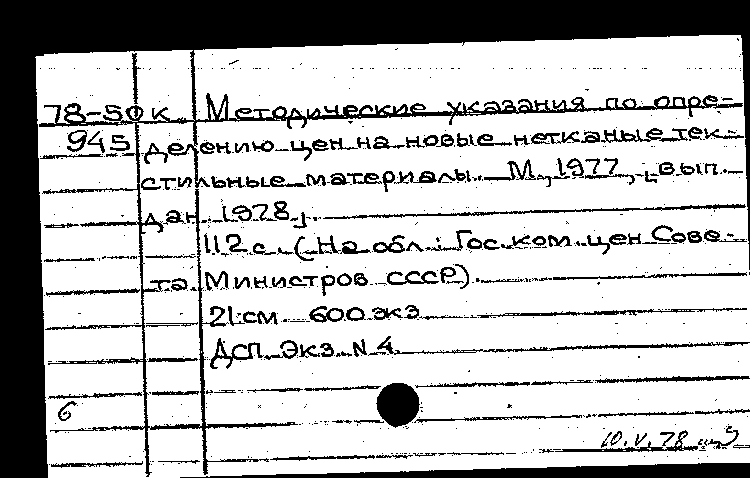 78-50к. Методические указания по опре-
945 делению цен на новые нетканые тек-
стильные материалы. М., 1977, [вып.
дан 1978].
112 с. (На обл.: Гос. ком. цен Сове-
та Министров СССР).
21 см. 600 экз.
Дсп. Экз. N 4
6
10.V.78